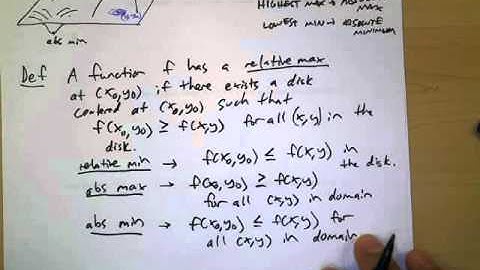 HIGHEST MAX → ABSOLUTE MAX
LOWEST MIN → ABSOLUTE MINIMUM
abs min
Def A function f has a relative max
at (x₀,y₀) if there exists a disk
centered at (x₀,y₀) such that
f(x₀,y₀) ≥ f(x,y) for all (x,y) in the
disk.
relative min → f(x₀,y₀) ≤ f(x,y) in
the disk.
abs max → f(x₀,y₀) ≥ f(x,y)
for all (x,y) in domain
abs min → f(x₀,y₀) ≤ f(x,y) for
all (x,y) in domain